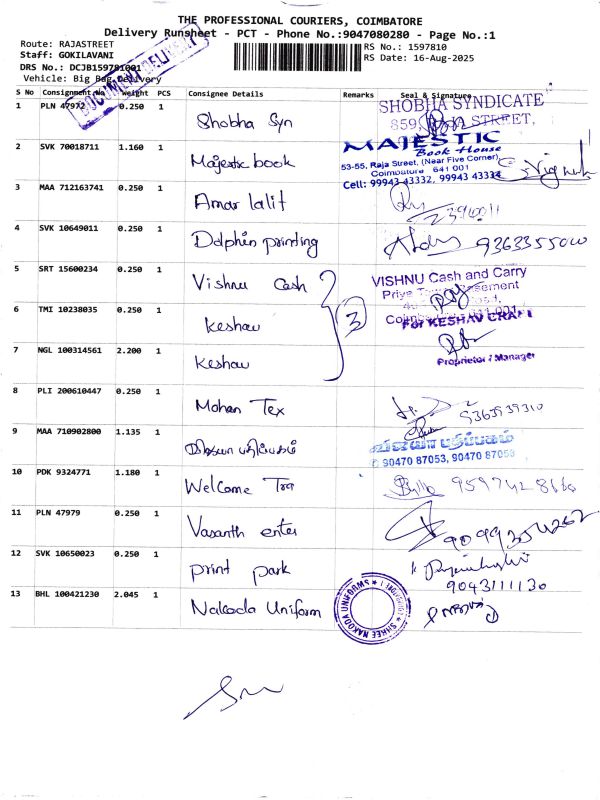 THE PROFESSIONAL COURIERS, COIMBATORE
Delivery Runsheet - PCT - Phone No.:9047080280 - Page No.:1
Route: RAJASTREET
RS No.: 1597810
Staff: GOKILAVANI
RS Date: 16-Aug-2025
DRS No.: DCJB1597810O1
Vehicle: Big Bag Delivery
DOCUMENT DELIVERY
S No Consignment No Weight PCS Consignee Details Remarks Seal & Signature
1 PLN 47972 0.250 1 Shobha Syn
SHOBHA SYNDICATE
859, STREET,
2 SVK 70018711 1.160 1 Majestic book
MAJESTIC
Book House
53-55, Raja Street, (Near Five Corner)
Coimbatore 641 001
Cell: 99943 43332, 99943 43334
3 MAA 712163741 0.250 1 Amar lalit
4 SVK 10649011 0.250 1 Dolphin printing
5 SRT 15600234 0.250 1 Vishnu Cash
VISHNU Cash and Carry
6 TMI 10238035 0.250 1 Keshav
3
For KESHAV CRAFT
7 NGL 100314561 2.200 1 Keshav
Proprietor / Manager
8 PLI 200610447 0.250 1 Mohan Tex
9363939310
9 MAA 710902800 1.135 1 விஜயா பதிப்பகம்
விஜயா பதிப்பகம்
90470 87053, 90470 87053
10 PDK 9324771 1.180 1 Welcome Tra
11 PLN 47979 0.250 1 Vasanth enter
12 SVK 10650023 0.250 1 print park
9043111130
13 BHL 100421230 2.045 1 Nakoda Uniform
SHREE NAKODA UNIFORMS